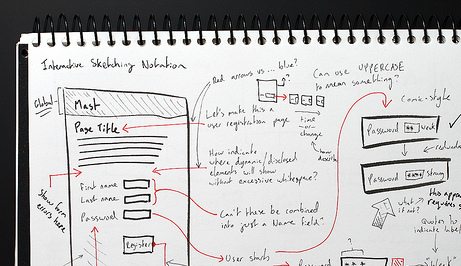 Interactive Sketching Notation
Red arrows vs... blue?
?
Can use UPPERCASE
to mean something?
Global
Mast
Page Title
Let's make this a
user registration page
time
or
change
Comic-style
Password weak
How indicate
where dynamic/disclosed
elements will show
without excessive whitespace?
Password strong
First name
Last name
Password
Register
Show form
errors here
Can't these be combined
into just a Name field?
User starts
Password
?
what
if not?
this appea
requires s
Quotes to
indicate label